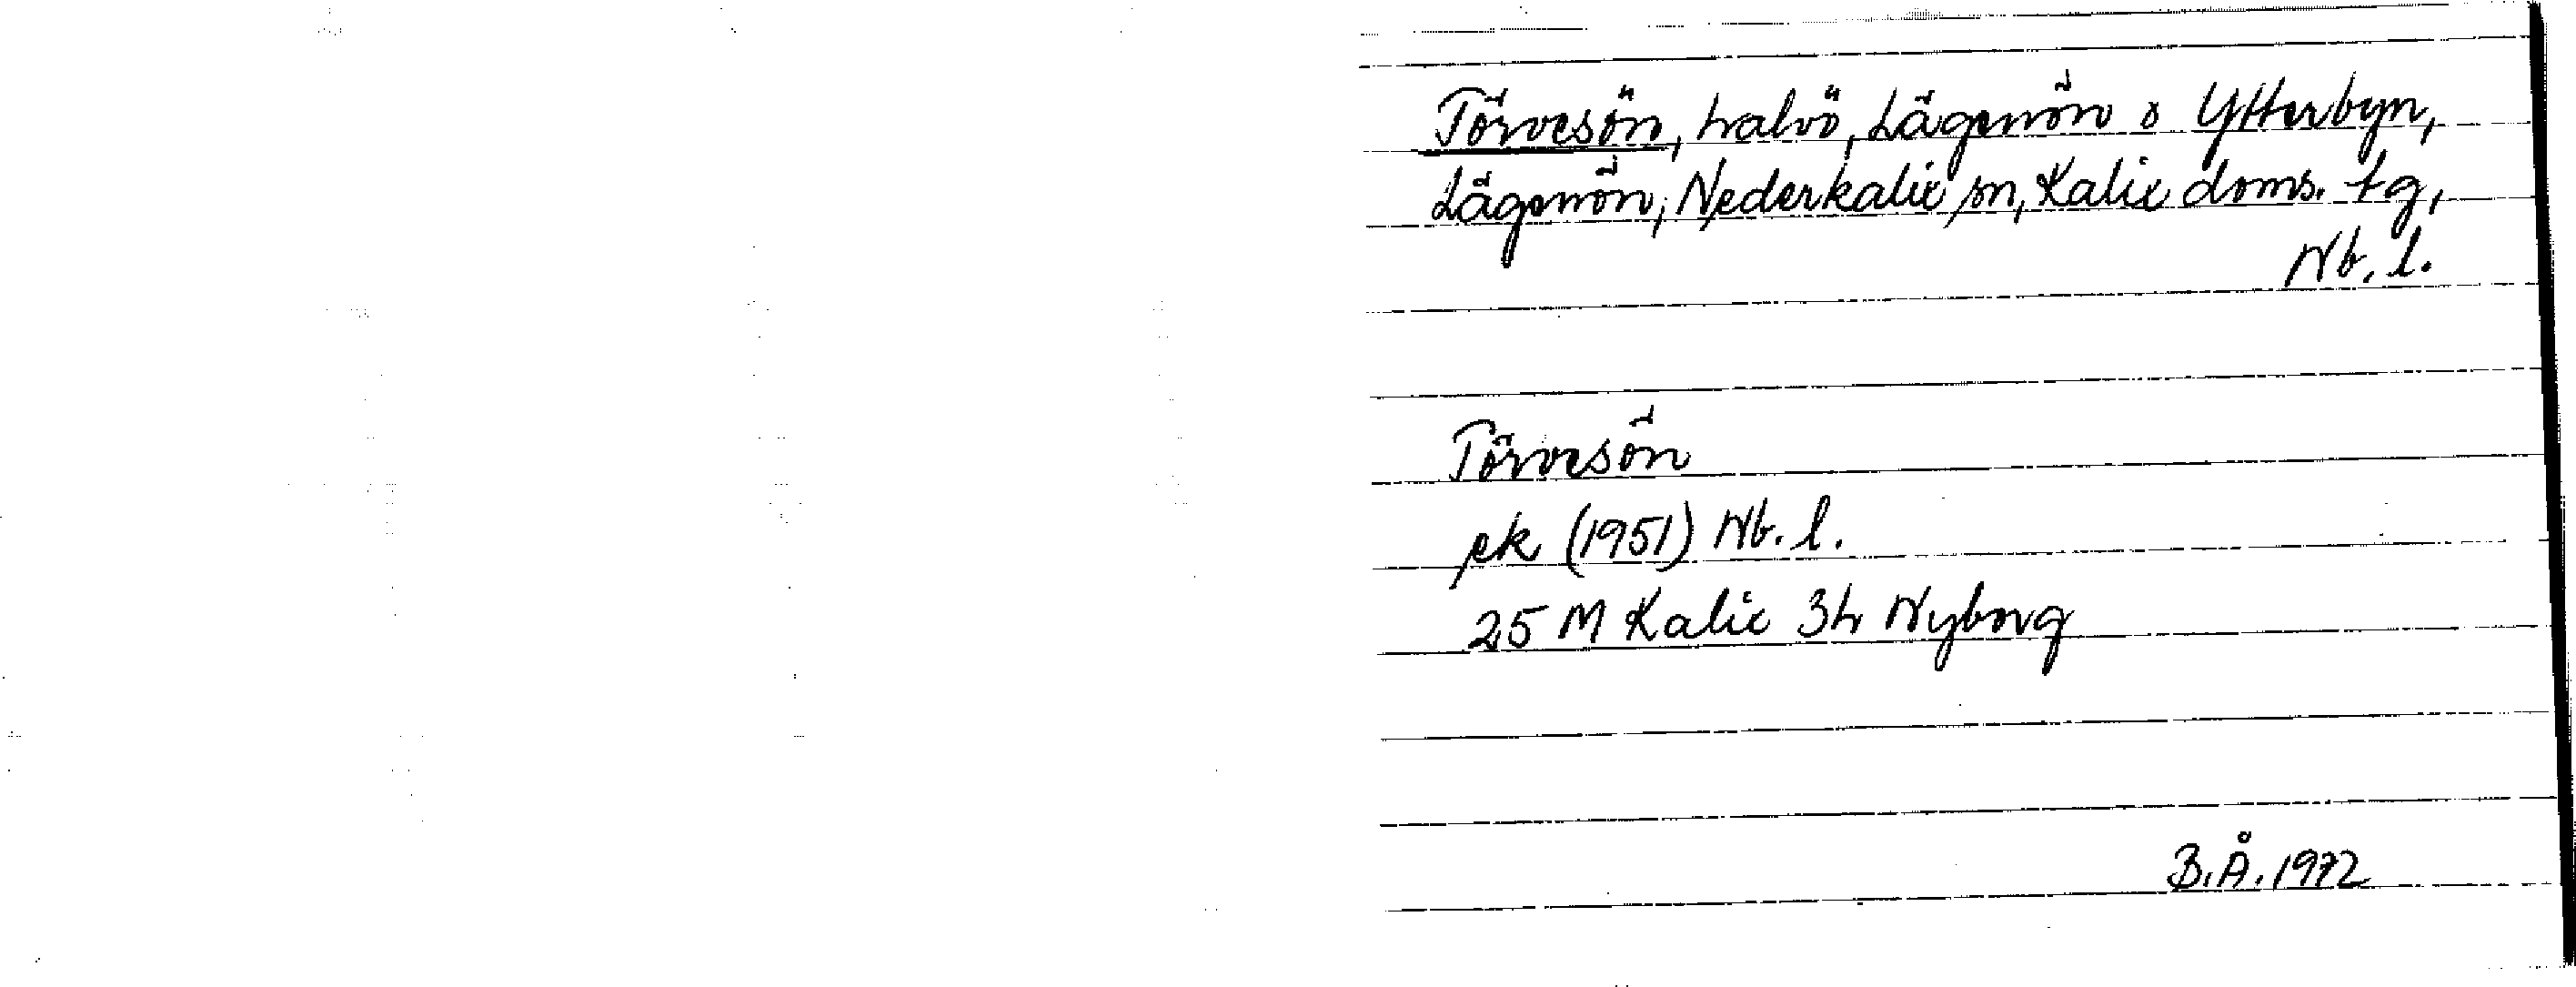 Törvesön, halvö, Lägenön o Ytterbyn,
Lägenön, Nederkalix sn, Kalix doms. tg,
Nb. l.
Törvesön
ek (1951) Nb. l.
25 M Kalix 3h Nyborg
B.Å. 1972